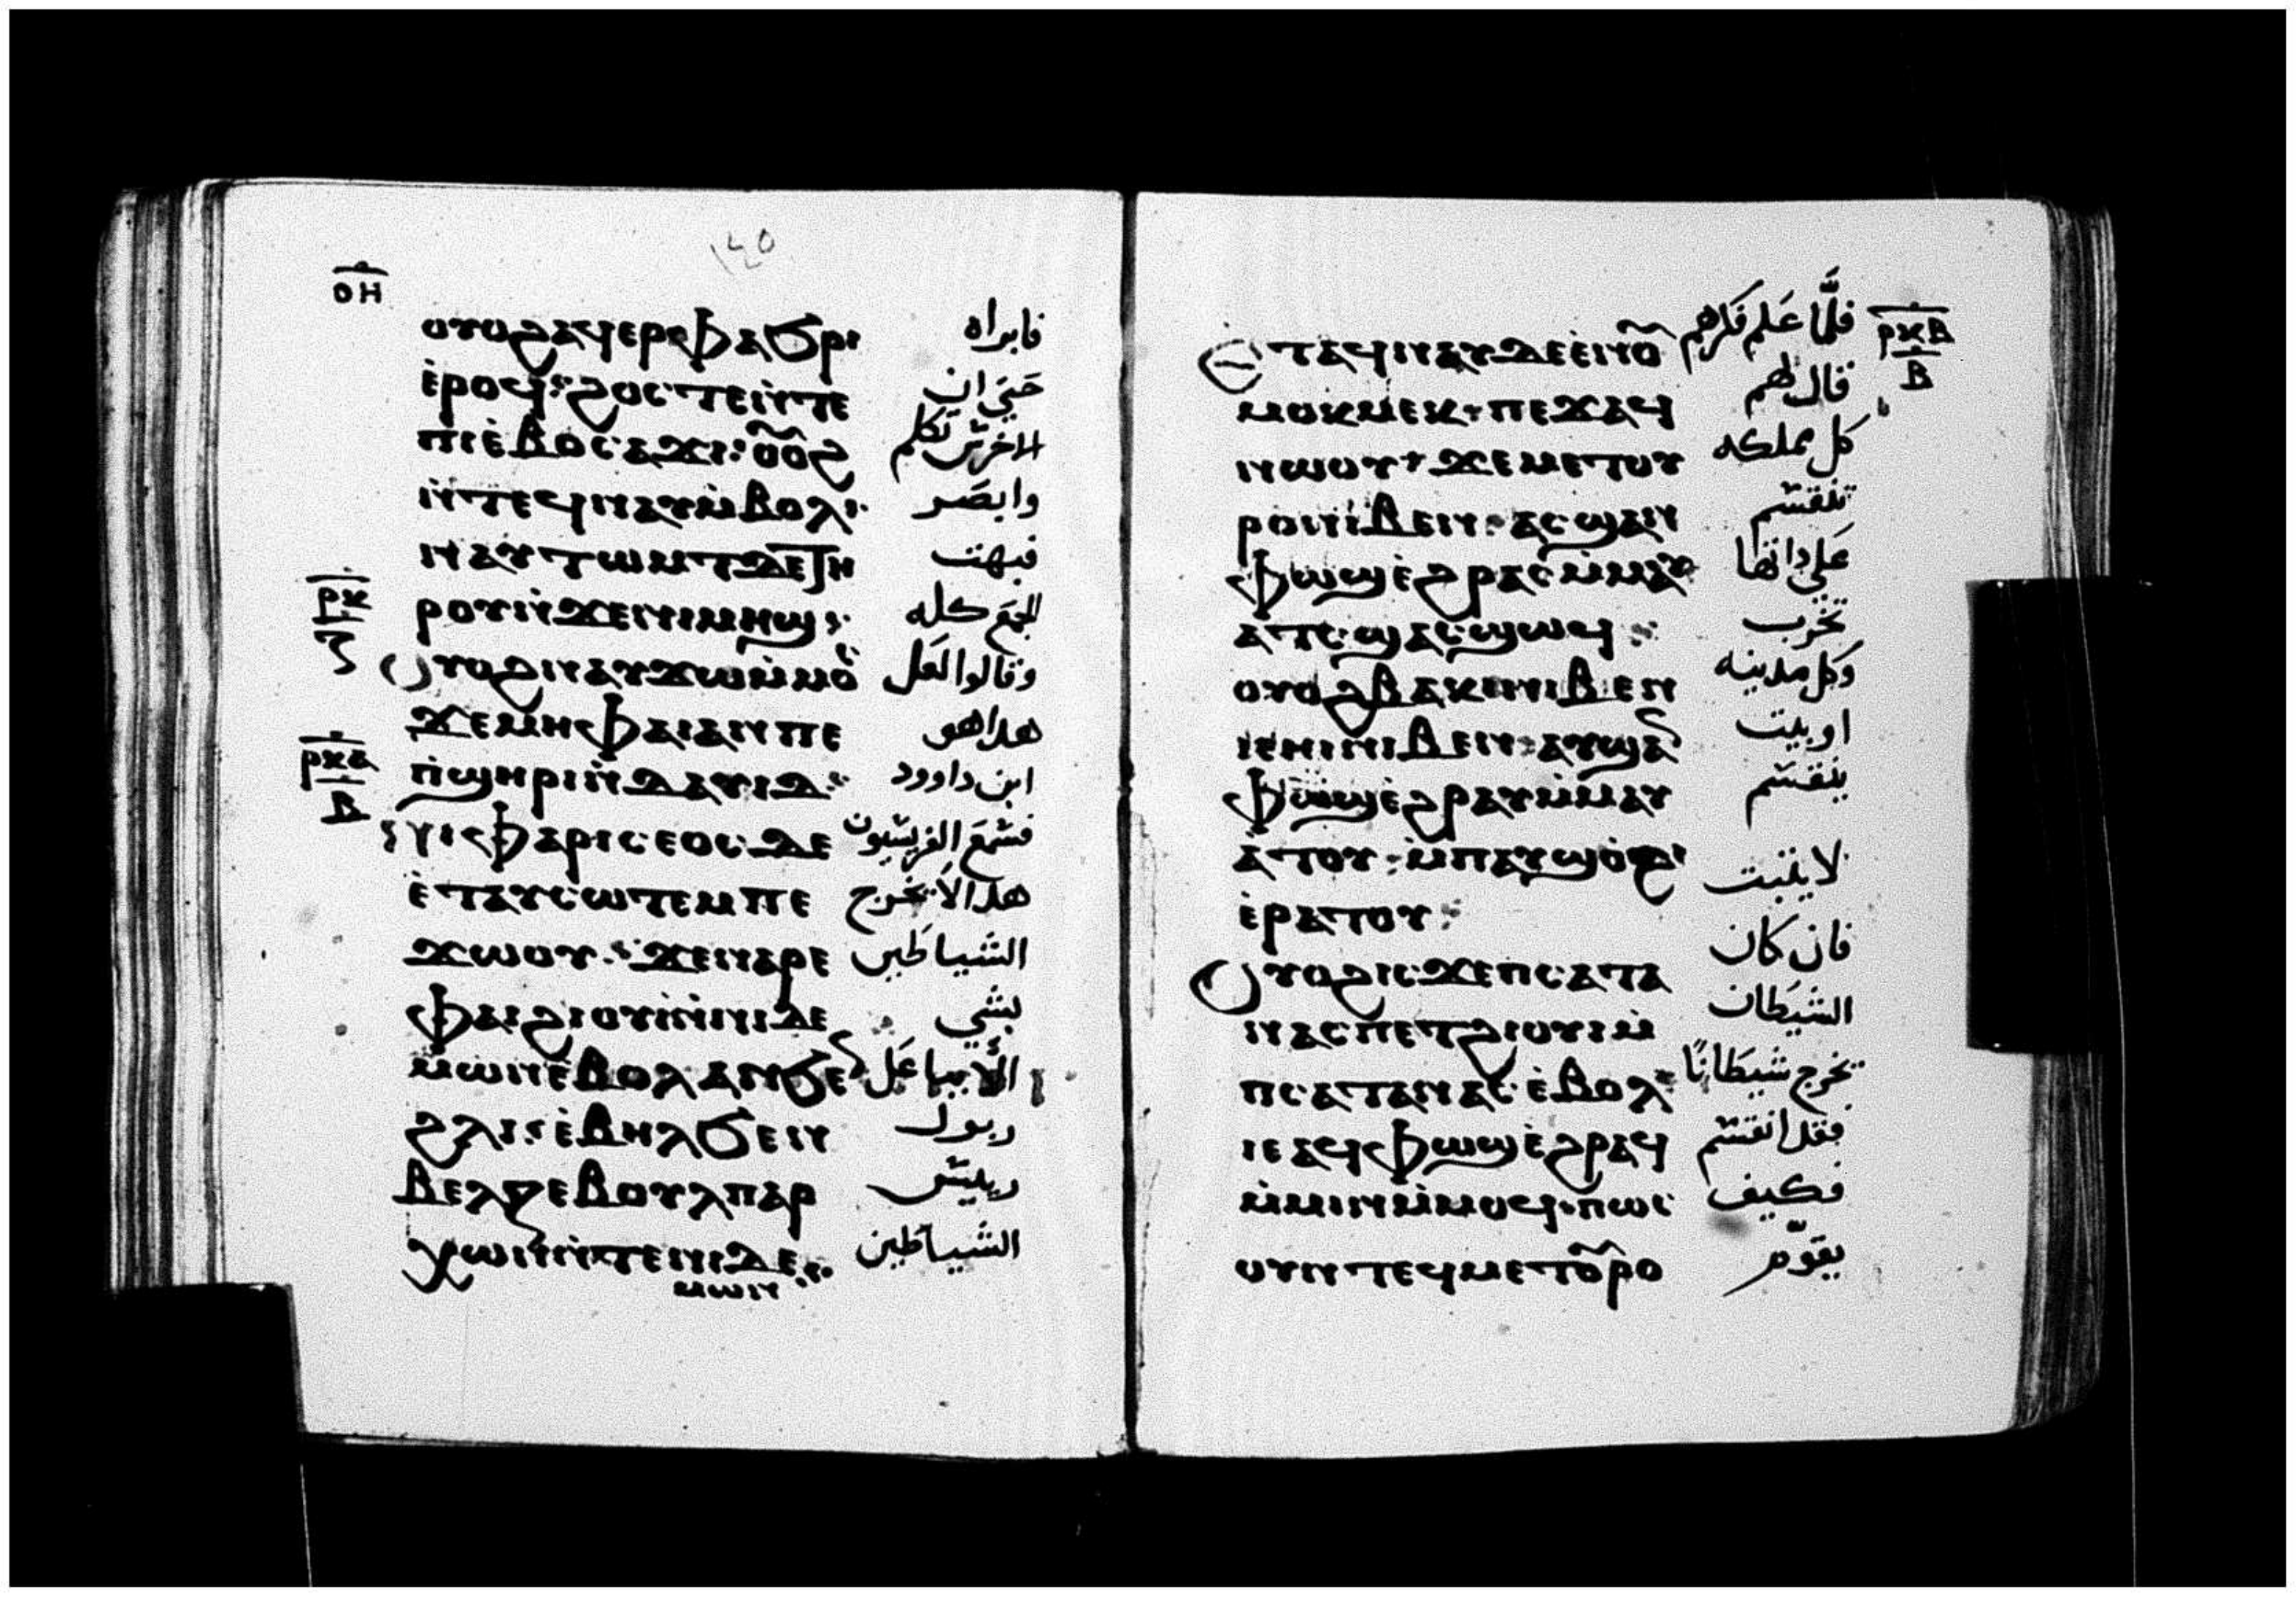 ١٤٥
ⲟⲏ
ⲟⲩⲟϩⲁϥⲉⲣⲫⲁϧⲣⲓ فابراه
ⲉ̀ⲣⲟϥ: ϩⲟⲥⲧⲉⲛ̀ⲧⲉ حتي ان
ⲡⲓⲉ̀ⲃⲟⲥⲁϫⲓ: ⲟ̅ⲟ̅ϩ الاخرس تكلم
ⲛ̀ⲧⲉϥⲛⲁⲩⲙ̀ⲃⲟⲗ: وابصر
ⲛⲁⲩⲧⲱⲙⲧⲇⲉⲧⲏ فبهت
ⲣⲕ ⲣⲟⲩⲛ̀ϫⲉⲛⲓⲙⲏϣ: الجمع كله
ⲟⲩⲟϩⲛⲁⲩϫⲱⲙ̀ⲙⲟⲥ وقالوا لعل
ϫⲉⲙⲏⲫⲁⲓⲁⲛⲡⲉ هدا هو
ⲣⲕⲁ ⲃ ⲡ̀ϣⲏⲣⲓⲛ̀ⲇⲁⲩⲓⲇ: ابن داوود
ⲛⲓⲫⲁⲣⲓⲥⲉⲟⲥⲇⲉ فسمع الفريسيون
ⲉ̀ⲧⲁⲩⲥⲱⲧⲉⲙⲡⲉ هدا لا يخرج
ϫⲱⲟⲩ: ϫⲉⲛⲁⲣⲉ الشياطين
ⲫⲁⲓϩⲓⲟⲩⲓ̀ⲛ̀ⲛⲓⲇⲉ بشي
ⲙⲱⲛⲉ̀ⲃⲟⲗⲁⲛϧⲉⲛ الا بباعل
ϩⲗⲓ: ⲉ̀ⲃⲏⲗϧⲉⲛ زبول
ⲃⲉⲗⲍⲉⲃⲟⲩⲗⲡⲁⲣ رييس
ⲭⲱⲛⲛ̀ⲧⲉⲛⲓⲇⲉ الشياطين
ⲙⲱⲛ
ⲣⲕⲃ ⲃ
ⲉ̀ⲧⲁϥⲛⲁⲩⲇⲉⲉ̀ⲛⲟⲩ فلما علم فكرهم
ⲙⲟⲕⲙⲉⲕ· ⲡⲉϫⲁϥ قال لهم
ⲛⲱⲟⲩ· ϫⲉⲙⲉⲧⲟⲩ كل مملكه
ⲣⲟⲛⲓⲃⲉⲛ· ⲁⲥϣⲁⲛ تنقسم
ⲫⲱϣⲉ̀ϩⲣⲁⲥⲙ̀ⲙⲁⲩ علي داتها
ⲁⲧⲥ ϣⲁⲥϣⲱϥ: تخرب
ⲟⲩⲟϩⲃⲁⲕⲓⲛⲓⲃⲉⲛ وكل مدينه
ⲓⲉⲏⲓⲛⲓⲃⲉⲛ· ⲁⲩϣⲁⲛ او بيت
ⲫⲱϣⲉ̀ϩⲣⲁⲩⲙ̀ⲙⲁⲩ ينقسم
ⲁ̀ⲧⲟⲩ· ⲙ̀ⲡⲁⲩϣⲟ̀ϩⲓ لا يثبت
ⲉ̀ⲣⲁⲧⲟⲩ:
ⲟⲩⲟϩⲓⲥϫⲉⲡⲥⲁⲧⲁ فان كان
ⲛⲁⲥⲡⲉⲧϩⲓⲟⲩⲓⲙ̀ الشيطان
ⲡⲥⲁⲧⲁⲛⲁⲥⲉ̀ⲃⲟⲗ يخرج شيطانًا
ⲓⲉⲁϥⲫⲱϣⲉ̀ϩⲣⲁϥ فقد انقسم
ⲙ̀ⲙⲓⲛⲙ̀ⲙⲟϥ· ⲡⲱⲥ فكيف
ⲟⲩⲛⲧⲉϥⲙⲉⲧⲟⲩⲣⲟ يقوم